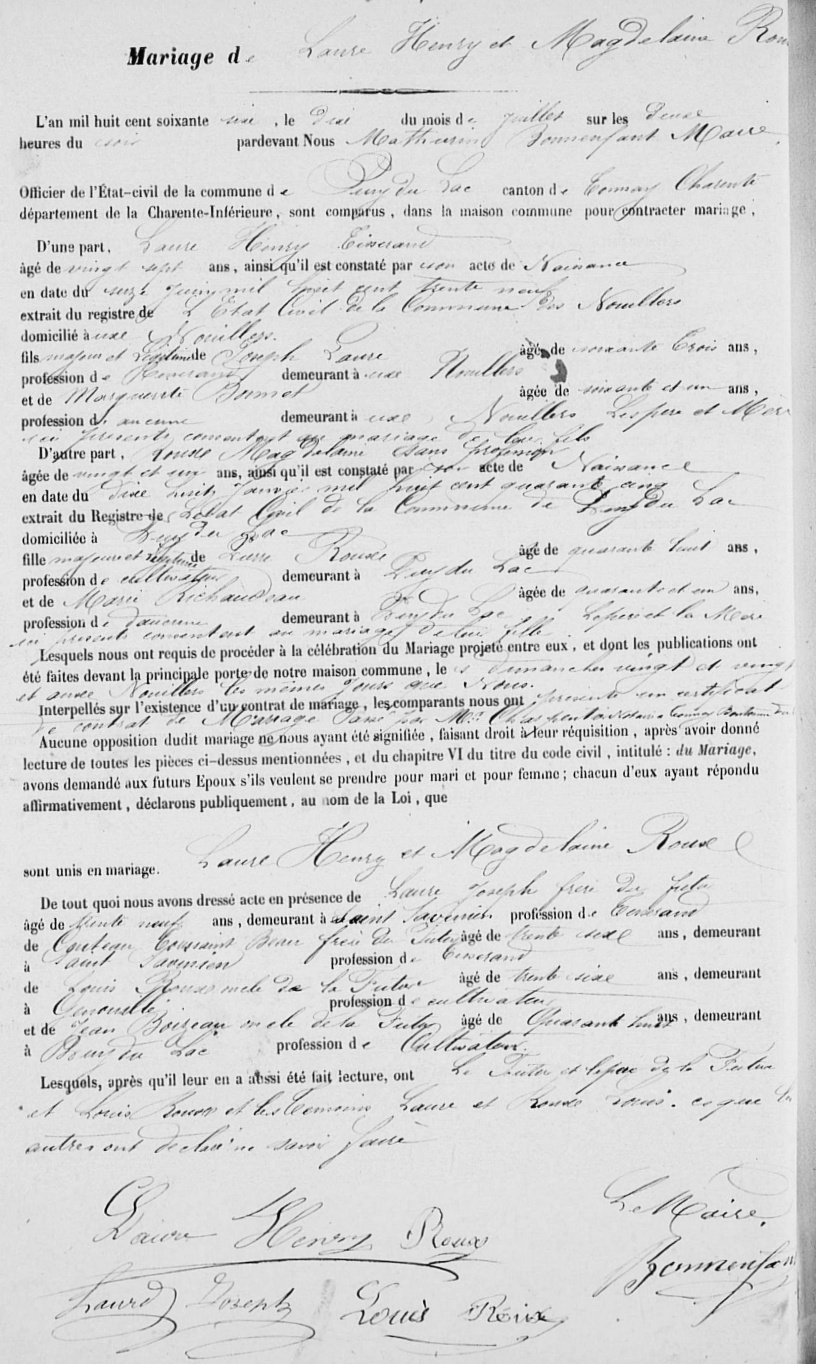 Mariage de Laure Henry et Magdelaine
L'an mil huit cent soixante six, le dix du mois de juillet sur les deux
heures du soir pardevant Nous Mathurin Bonnenfant Maire
Officier de l'État-civil de la commune de Puy du Lac canton de Tonnay Charente
département de la Charente-Inférieure, sont comparus, dans la maison commune pour contracter mariage,
D'une part, Laure Henry Tisserand
âgé de vingt sept ans, ainsi qu'il est constaté par son acte de Naisance
en date du seize juin mil huit cent trente neuf
extrait du registre de L'Etat Civil de la Commune des Nouillers
domicilié à aux Nouillers.
fils majeur et Légitime de Joseph Laure âgé de soixante trois ans,
profession de Tisserand demeurant à aux Nouillers
et de Marguerite Bonnet âgée de soixante et un ans,
profession de aucune demeurant à aux Nouillers Les pere et Mère
ici presents consentent au mariage de leur fils
D'autre part, Rouxe Magdelaine sans profession
âgée de vingt et un ans, ainsi qu'il est constaté par son acte de Naisance
en date du dixe huit Janvier mil huit cent quarante cinq
extrait du Registre de L'etat Civil de la Commune de Puy du Lac
domiciliée à Puy du Lac
fille majeure et légitime de Pierre Rouxe âgé de quarante huit ans,
profession de cultivateur demeurant à Puy du Lac
et de Marie Richaudeau âgée de quarante et un ans,
profession de d'aucune demeurant à Puy du Lac Le pere et la Mere
ici presents consentent au mariage de leur fille
Lesquels nous ont requis de procéder à la célébration du Mariage projeté entre eux, et dont les publications ont
été faites devant la principale porte de notre maison commune, le s dimanches vingt et vingt
et auxe Nouillers les mêmes jours que Nous.
Interpellés sur l'existence d'un contrat de mariage, les comparants nous ont presenté un certificat
de contrat de Mariage Passé par Me Charpentier Notaire a Tonnay Boutonne
Aucune opposition dudit mariage ne nous ayant été signifiée, faisant droit à leur réquisition, après avoir donné
lecture de toutes les pièces ci-dessus mentionnées, et du chapitre VI du titre du code civil, intitulé : du Mariage,
avons demandé aux futurs Epoux s'ils veulent se prendre pour mari et pour femme; chacun d'eux ayant répondu
affirmativement, déclarons publiquement, au nom de la Loi, que
Laure Henry et Magdelaine Rouxe
sont unis en mariage.
De tout quoi nous avons dressé acte en présence de Laure Joseph frere du futur
âgé de trente neuf ans, demeurant à Saint Savinien profession de Tisserand
de Couteau Toussaint Beau frere du Futur âgé de trente sixe ans, demeurant
à Saint Savinien profession de Tisserand
de Louis Rouxe oncle de la Future âgé de trente sixe ans, demeurant
à Genouillé profession de cultivateur
et de Jean Boireau oncle de la Future âgé de Quarante huit ans, demeurant
à Puy du Lac profession de Cultivateur.
Lesquels, après qu'il leur en a aussi été fait lecture, ont Le Futur et le pere de la Future
et Louis Rouxe et les temoins Laure et Rouxe Louis. ce que les
autres ont déclaré ne savoir faire
Le Maire,
Laure Henry Roux Bonnenfant
Laure Joseph Louis Roux